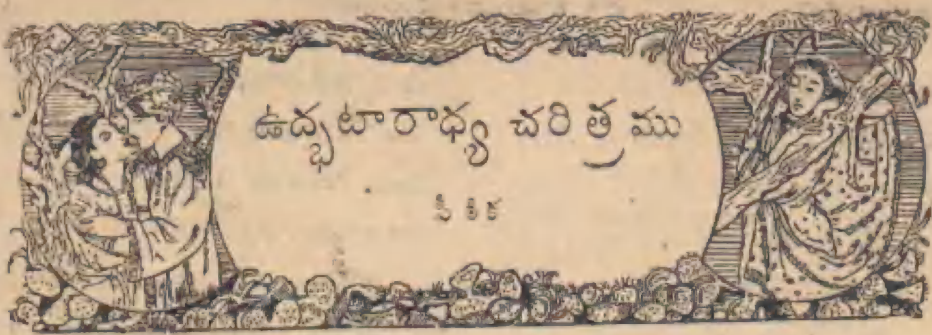 ఉద్భటారాధ్య చరిత్రము
పీఠిక